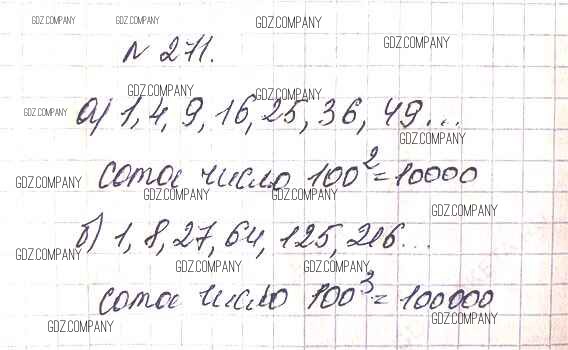 GDZ.COMPANY GDZ.COMPANY GDZ.COMPANY
GDZ.COMPANY
№ 271.
GDZ.COMPANY GDZ.COMPANY
GDZ.COMPANY
а) 1, 4, 9, 16, 25, 36, 49...
GDZ.COMPANY
сота число 100² = 10000
GDZ.COMPANY GDZ.COMPANY GDZ.COMPANY
GDZ.COMPANY
б) 1, 8, 27, 64, 125, 216...
GDZ.COMPANY GDZ.COMPANY GDZ.COMPANY
сота число 100³ = 100000
GDZ.COMPANY GDZ.COMPANY